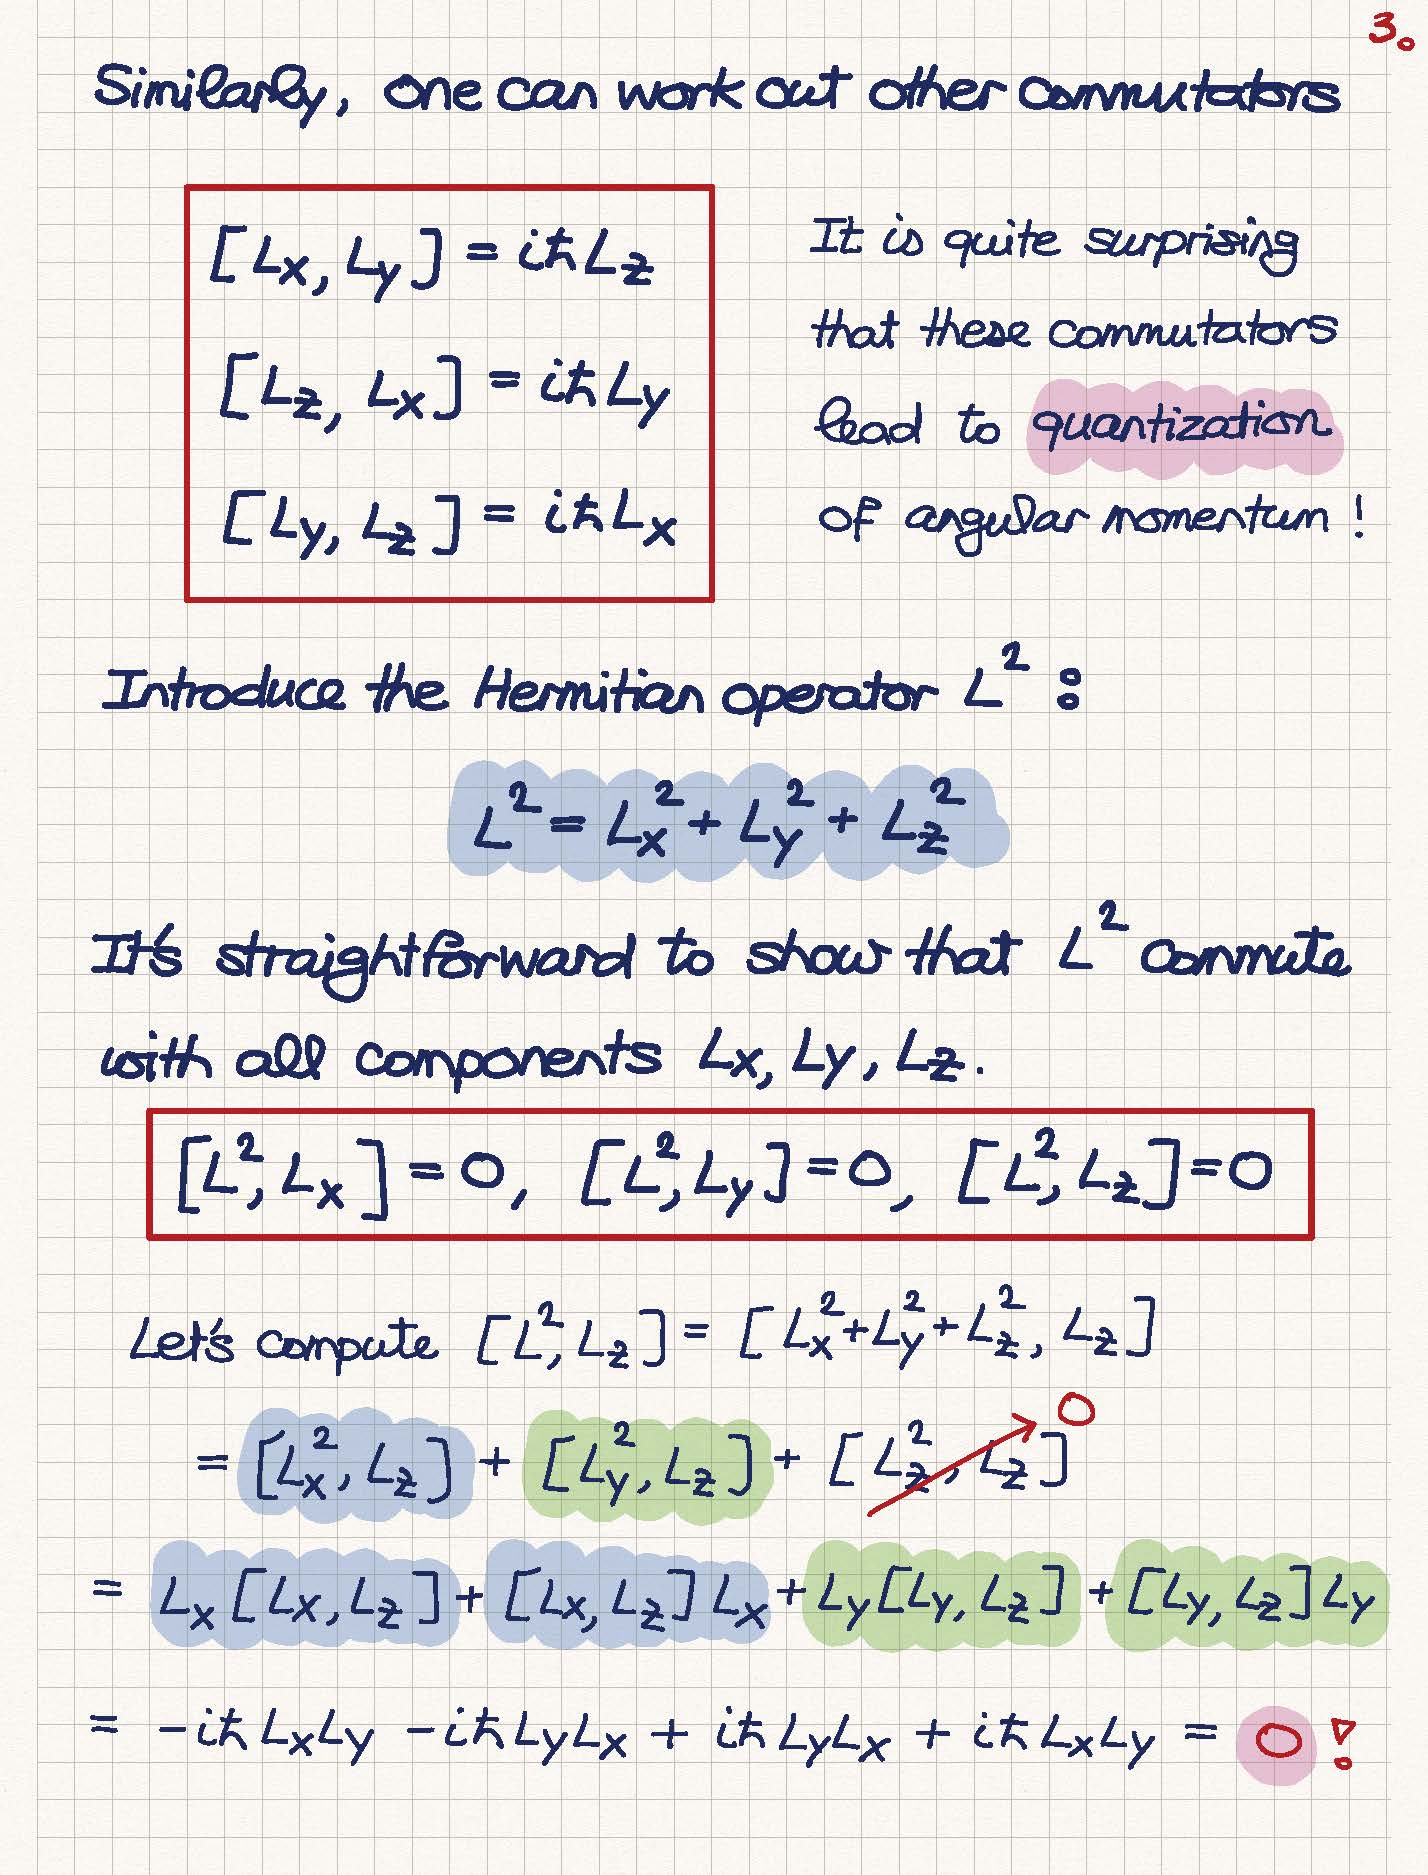 3.
Similarly, one can work out other commutators
[Lx, Ly] = iħLz
[Lz, Lx] = iħLy
[Ly, Lz] = iħLx
It is quite surprising
that these commutators
lead to quantization
of angular momentum!
Introduce the Hermitian operator L²:
L² = Lx² + Ly² + Lz²
It's straightforward to show that L² commute
with all components Lx, Ly, Lz.
[L², Lx] = 0, [L², Ly] = 0, [L², Lz] = 0
Let's compute [L², Lz] = [Lx² + Ly² + Lz², Lz]
= [Lx², Lz] + [Ly², Lz] + [Lz², Lz] 0
= Lx[Lx, Lz] + [Lx, Lz]Lx + Ly[Ly, Lz] + [Ly, Lz]Ly
= -iħLxLy -iħLyLx + iħLyLx + iħLxLy = 0!